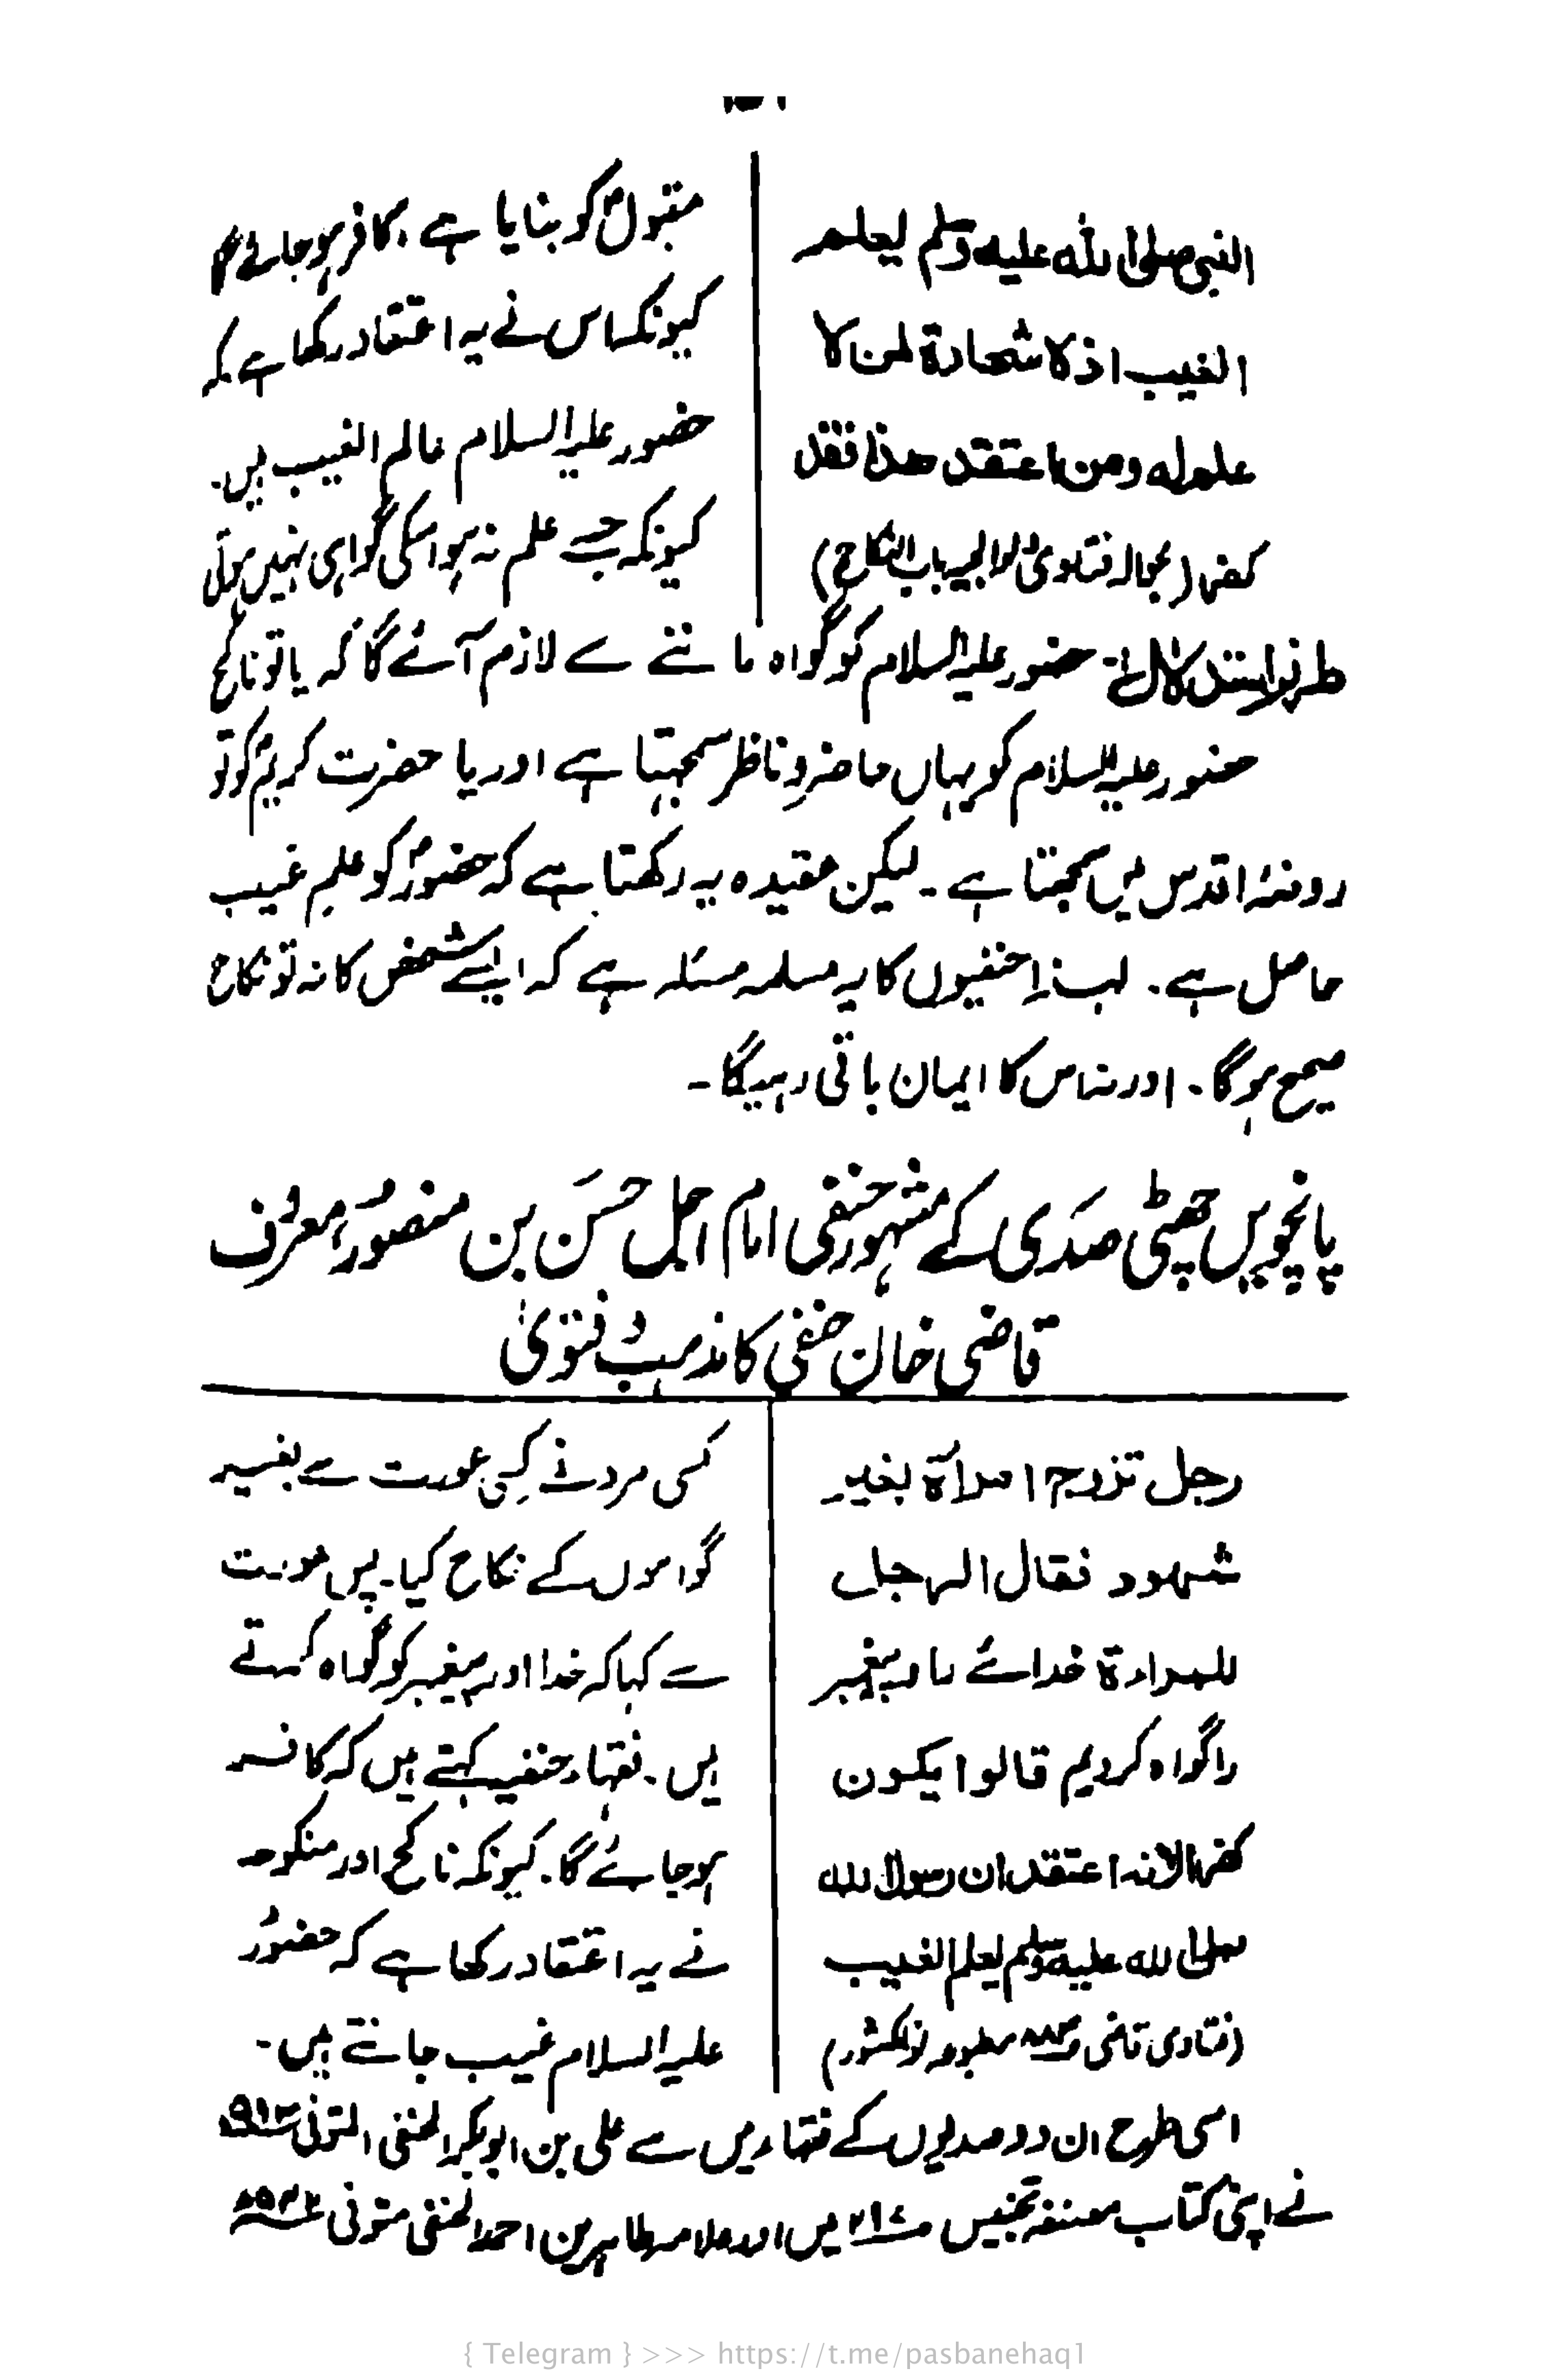 النبی صلی اللہ علیہ وسلم لیعلم
الغیب اذ لا شھادۃ لمن لا
علم لہ ومن اعتقد ھذا فقد
کفر (بحوالہ فتاویٰ باب النکاح)
مقبولؐ کو بنایا ہے، کافر ہو جائے گا
کیونکہ اس نے یہ اعتقاد رکھا ہے کہ
حضور علیہ السلام عالم الغیب ہیں۔
کیونکہ جسے علم نہ ہو اسکی گواہی نہیں ہوتی
طرز استدلال:۔ حضور علیہ السلام کو گواہ ماننے سے لازم آئے گا کہ یا تو ناکح
حضور علیہ السلام کو یہاں حاضر و ناظر سمجھتا ہے اور یا حضرت کریمؐ کو تو
روضۂ اقدس میں سمجھتا ہے۔ لیکن عقیدہ یہ رکھتا ہے کہ حضورؐ کو علم غیب
حاصل ہے۔ لہٰذا حنفیوں کا یہ مسلمہ مسئلہ ہے کہ ایسے شخص کا نہ تو نکاح
صحیح ہوگا۔ اور نہ اس کا ایمان باقی رہیگا۔
پانچویں چھٹی صدی کے مشہور حنفی امام اجل حسن بن منصور المعروف
قاضی خان حنفی کا مذہب و فتویٰ
رجل تزوج امرأۃ بغیر
شہود فقال الرجل
للمرأۃ خدائے را و پیغمبر
را گواہ کردیم قالوا یکون
کفرا لانہ اعتقد ان رسول اللہ
صلی اللہ علیہ وسلم یعلم الغیب
(فتاوی قاضی مطبوعہ نولکشور)
کسی مرد نے کسی عورت سے بغیر
گواہوں کے نکاح کیا۔ پس عورت
سے کہا کہ خدا اور پیغمبر کو گواہ کرتے
ہیں۔ فقہاء حنفیہ کہتے ہیں کہ کافر
ہوجائے گا۔ کیونکہ ناکح اور منکوحہ
نے یہ اعتقاد رکھا ہے کہ حضورؐ
علیہ السلام غیب جانتے ہیں۔
اسی طرح ان دو صدیوں کے فقہاء میں سے علی بن ابوبکر الحنفی المتوفی
نے اپنی کتاب مصنفہ تجنیس میں اور علامہ طاہر بن احمد الحنفی متوفی
{ Telegram } >>> https://t.me/pasbanehaq1